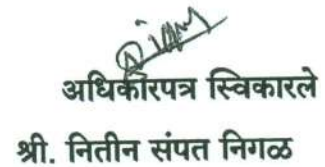 अधिकारपत्र स्विकारले
श्री. नितीन संपत निगळ